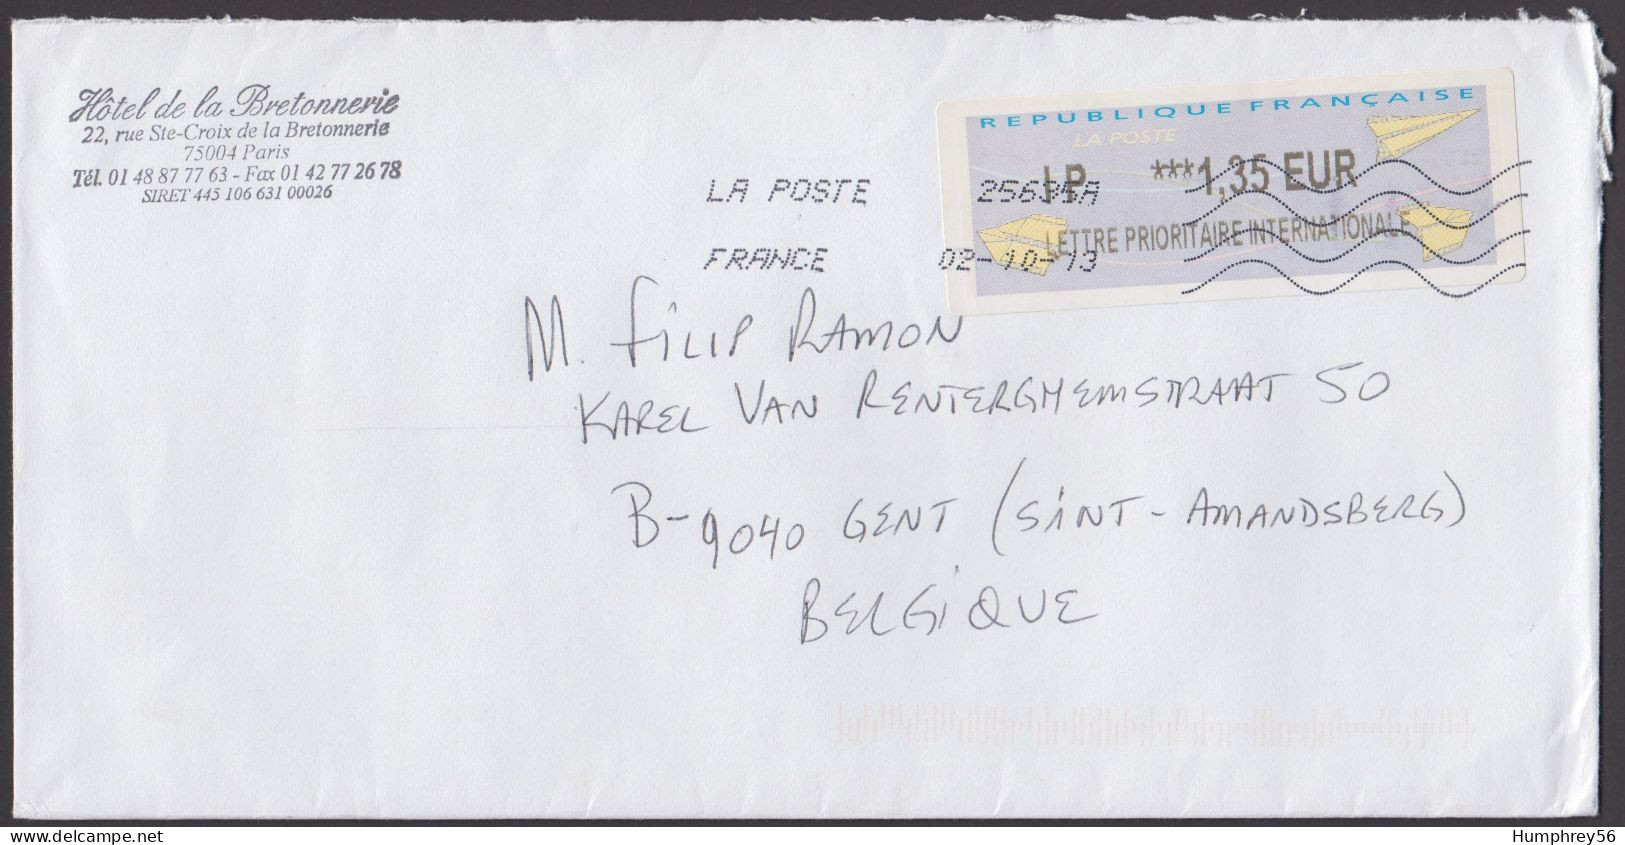 Hôtel de la Bretonnerie
22, rue Ste-Croix de la Bretonnerie
75004 Paris
Tél. 01 48 87 77 63 - Fax 01 42 77 26 78
SIRET 445 106 631 00026
REPUBLIQUE FRANÇAISE
LA POSTE
LP ***1,35 EUR
LETTRE PRIORITAIRE INTERNATIONALE
LA POSTE 25635A
FRANCE 02-10-13
M. FILIP RAMON
KAREL VAN RENTERGHEMSTRAAT 50
B-9040 GENT (SINT-AMANDSBERG)
BELGIQUE
delcampe.net
Humphrey56